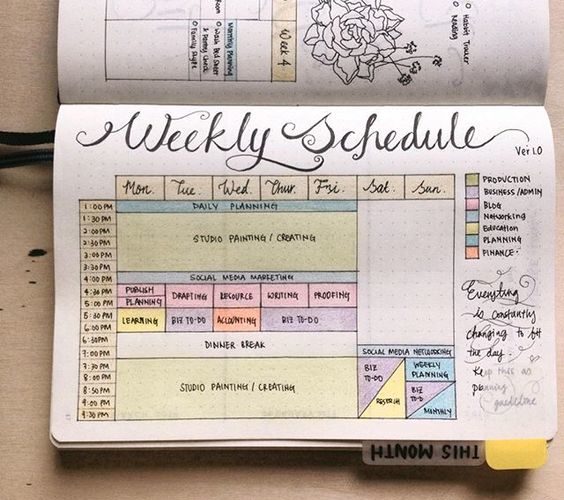 Week 4
Monthly Planning
Wash Bed Sheet
Family Skype
Habit Tracker
Reading
Weekly Schedule
Ver 1.0
Mon. Tue. Wed. Thur. Fri. Sat. Sun.
1:00 PM DAILY PLANNING
1:30 PM
2:00 PM
2:30 PM STUDIO PAINTING / CREATING
3:00 PM
3:30 PM
4:00 PM SOCIAL MEDIA MARKETING
4:30 PM PUBLISH DRAFTING RESOURCE WRITING PROOFING
5:00 PM PLANNING
5:30 PM LEARNING BIZ TO-DO ACCOUNTING BIZ TO-DO
6:00 PM
6:30 PM DINNER BREAK
7:00 PM SOCIAL MEDIA NETWORKING
7:30 PM BIZ TO-DO WEEKLY PLANNING
8:00 PM
8:30 PM STUDIO PAINTING / CREATING RESEARCH BIZ TO-D
9:00 PM MONTHLY
9:30 PM
PRODUCTION
BUSINESS/ADMIN
BLOG
Networking
Education
PLANNING
FINANCE
Everything
is constantly
changing to fit
the day.
Keep this as
planning
guideline
THIS MONTH